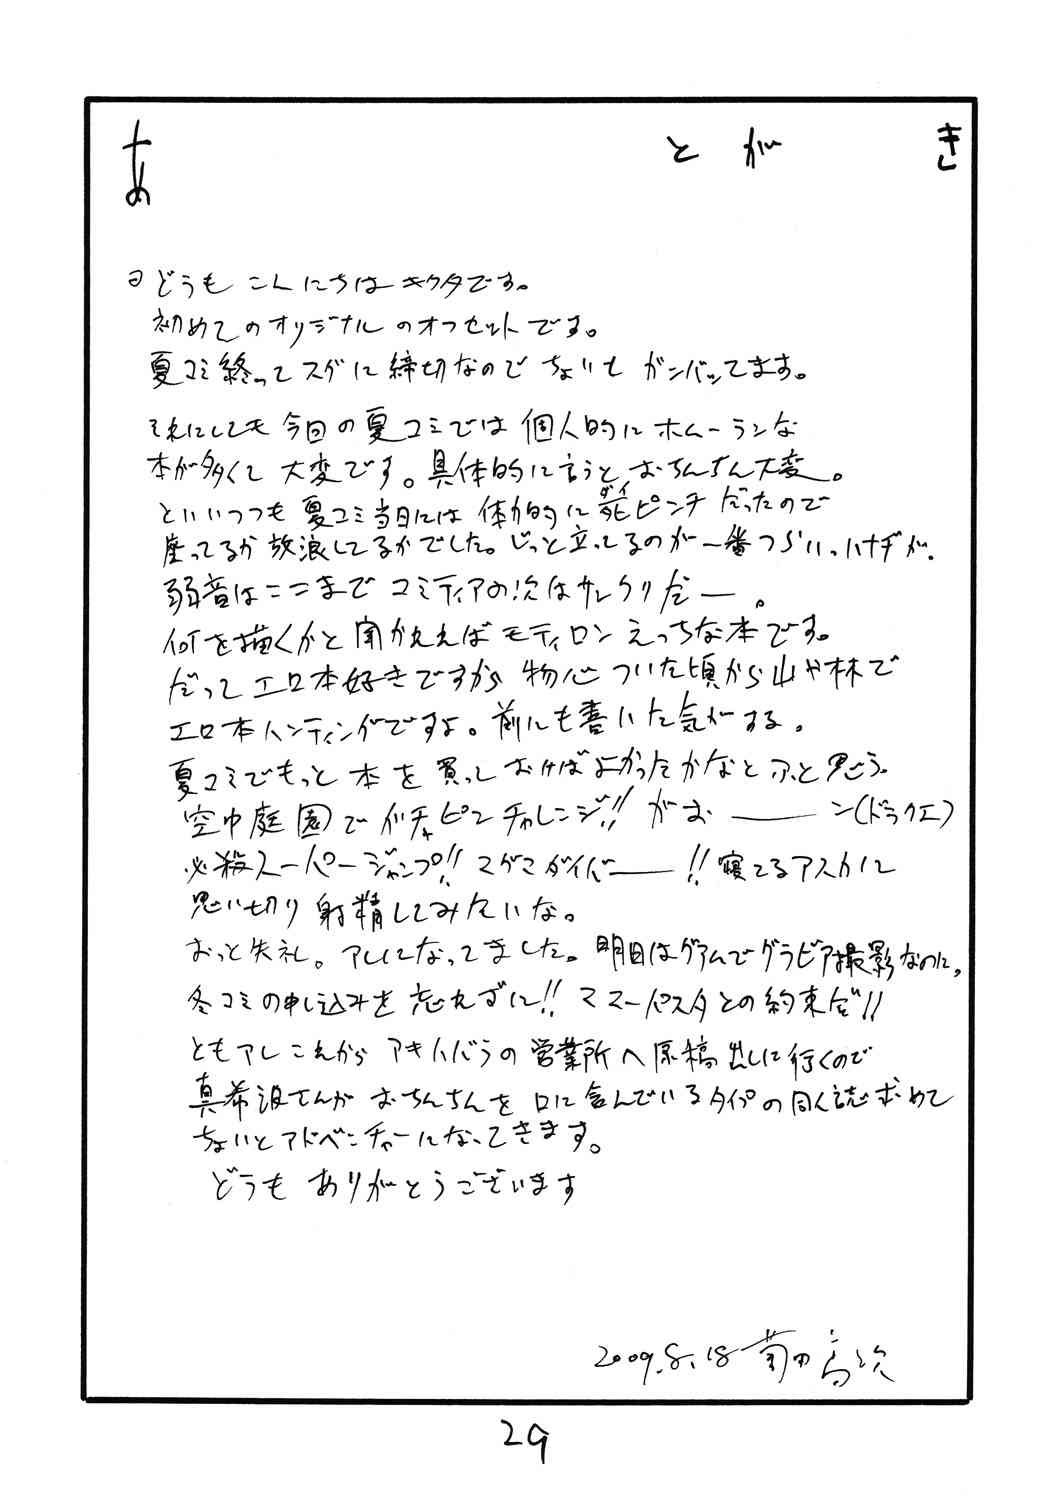 あとがき
どうも こんにちは キクタです。
初めてのオリジナルのオフセットです。
夏コミ終ってスグに締切なので ちょいと ガンバッてます。
それにしても 今回の夏コミでは 個人的に ホームランな
本が多くて 大変です。具体的に言うと おちんちん大変。
といいつつも 夏コミ当日には 体力的に 死ピンチ だったので
ダイ
座ってるか放浪してるかでした。じっと立ってるのが一番つらい。ハナヂが。
弱音はここまで コミティアの次はサンクリだー。
何を描くかと聞かれれば モティロン えっちな本です。
だってエロ本好きですから 物心ついた頃から山や林で
エロ本ハンティングですよ。前にも書いた気がする。
夏コミでもっと 本を買っておけばよかったかなと ふと思う。
空中庭園でガチャピンチャレンジ!! がお――ン(ドラクエ)
必殺スーパージャンプ!! マグマダイバー――!!
おっと失礼。アレになってました。明日はグアムでグラビア撮影なのに。
冬コミの申し込みを 忘れずに!! ママーパスタとの約束だ!!
ともアレ これから アキハバラの営業所へ原稿出しに行くので
ちょいとアドベンチャーになってきます。
どうも ありがとうございます
2009.8.18 菊田高次
29